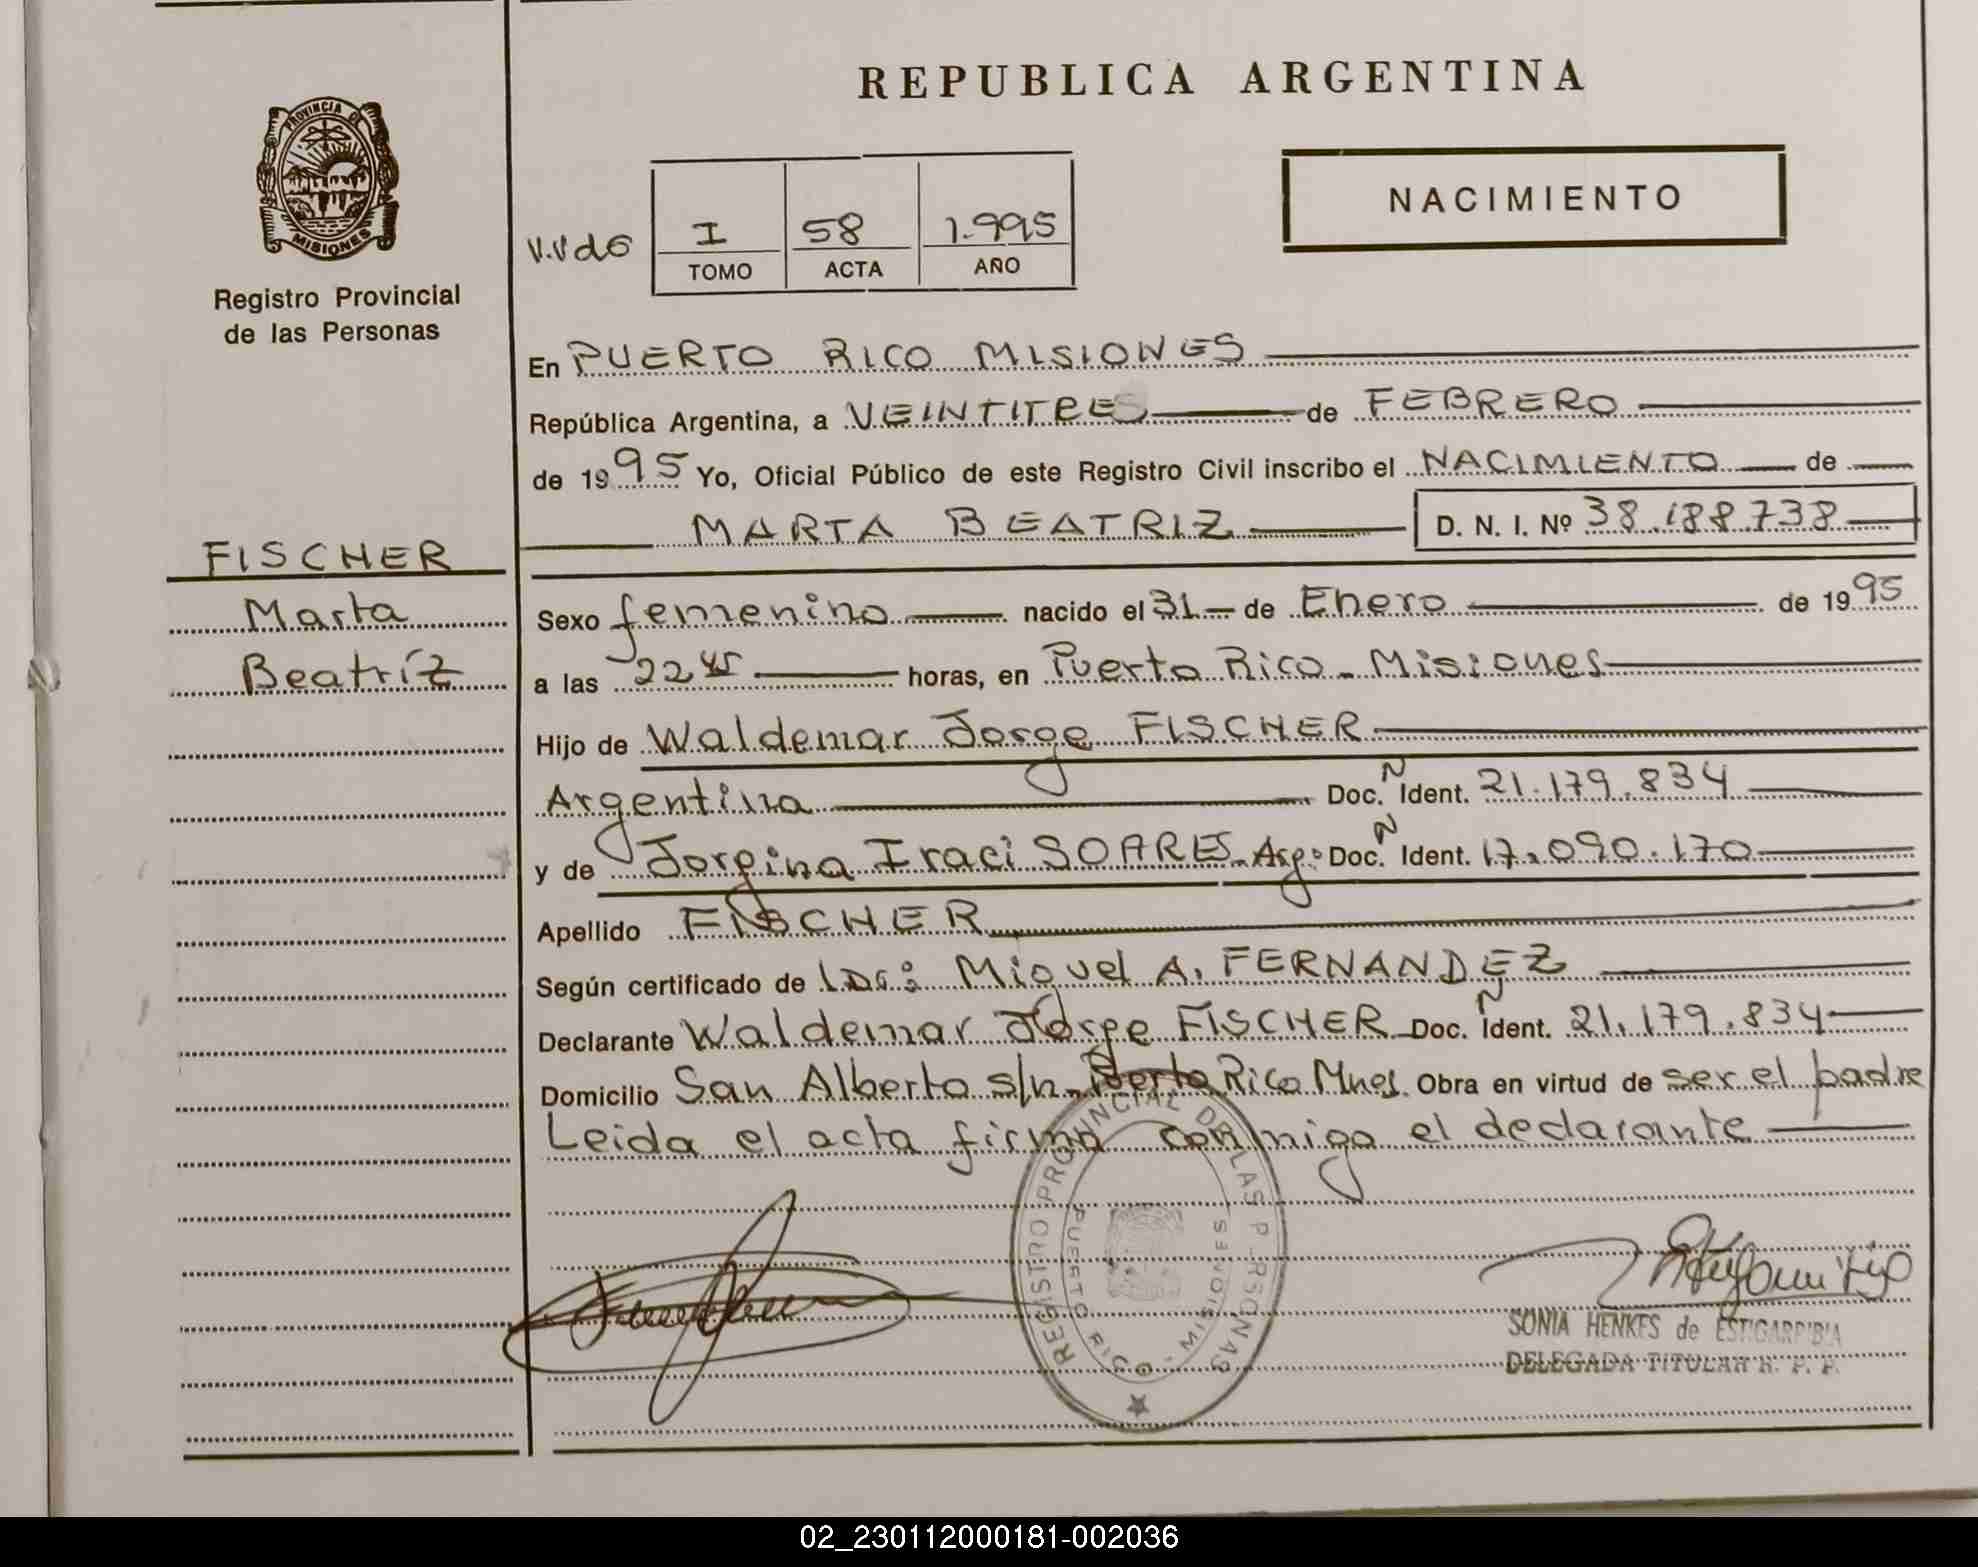 REPUBLICA ARGENTINA
PROVINCIA DE
MISIONES
Registro Provincial
de las Personas
NACIMIENTO
V.Vdo
I 58 1.995
TOMO ACTA AÑO
En PUERTO RICO MISIONES
República Argentina, a VEINTITRES de FEBRERO
de 1995 Yo, Oficial Público de este Registro Civil inscribo el NACIMIENTO de
MARTA BEATRIZ D. N. I. Nº 38.188.738
FISCHER
Marta
Beatríz
Sexo femenino nacido el 31 de Enero de 1995
a las 22 45 horas, en Puerto Rico - Misiones
Hijo de Waldemar Jorge FISCHER
Argentina Doc. N Ident. 21.179.834
y de Jorgina Iraci SOARES - Arg: Doc. N Ident. 17.090.170
Apellido FISCHER
Según certificado de Miguel A. FERNANDEZ
Declarante Waldemar Jorge FISCHER Doc. N Ident. 21.179.834
Domicilio San Alberto s/n - Puerto Rico Mnes. Obra en virtud de ser el padre
Leida el acta firma conmigo el declarante
REGISTRO PROVINCIAL DE LAS PERSONAS
PUERTO RICO - MISIONES
SONIA HENKES de ESTIGARRIBIA
DELEGADA TITULAR R. P. P.
02_230112000181-002036